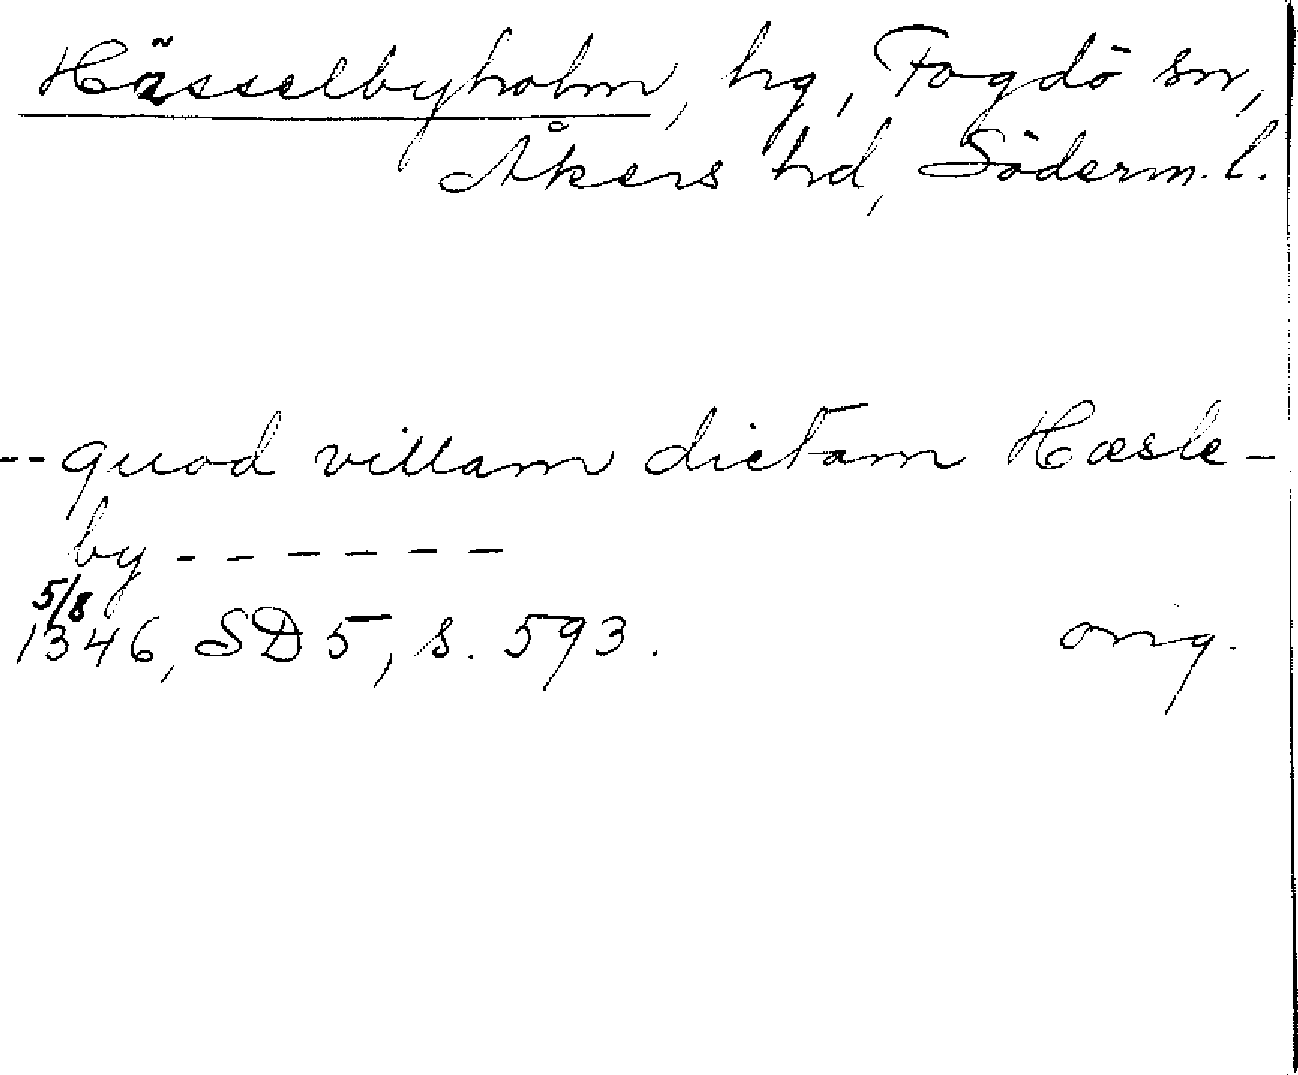 Hässelbyholm, hg, Fogdö sn,
Åkers hd, Söderm. l.
-- quod villam dictam Hæsle-
by ------
5/8
1346, SD 5, s. 593. orig.